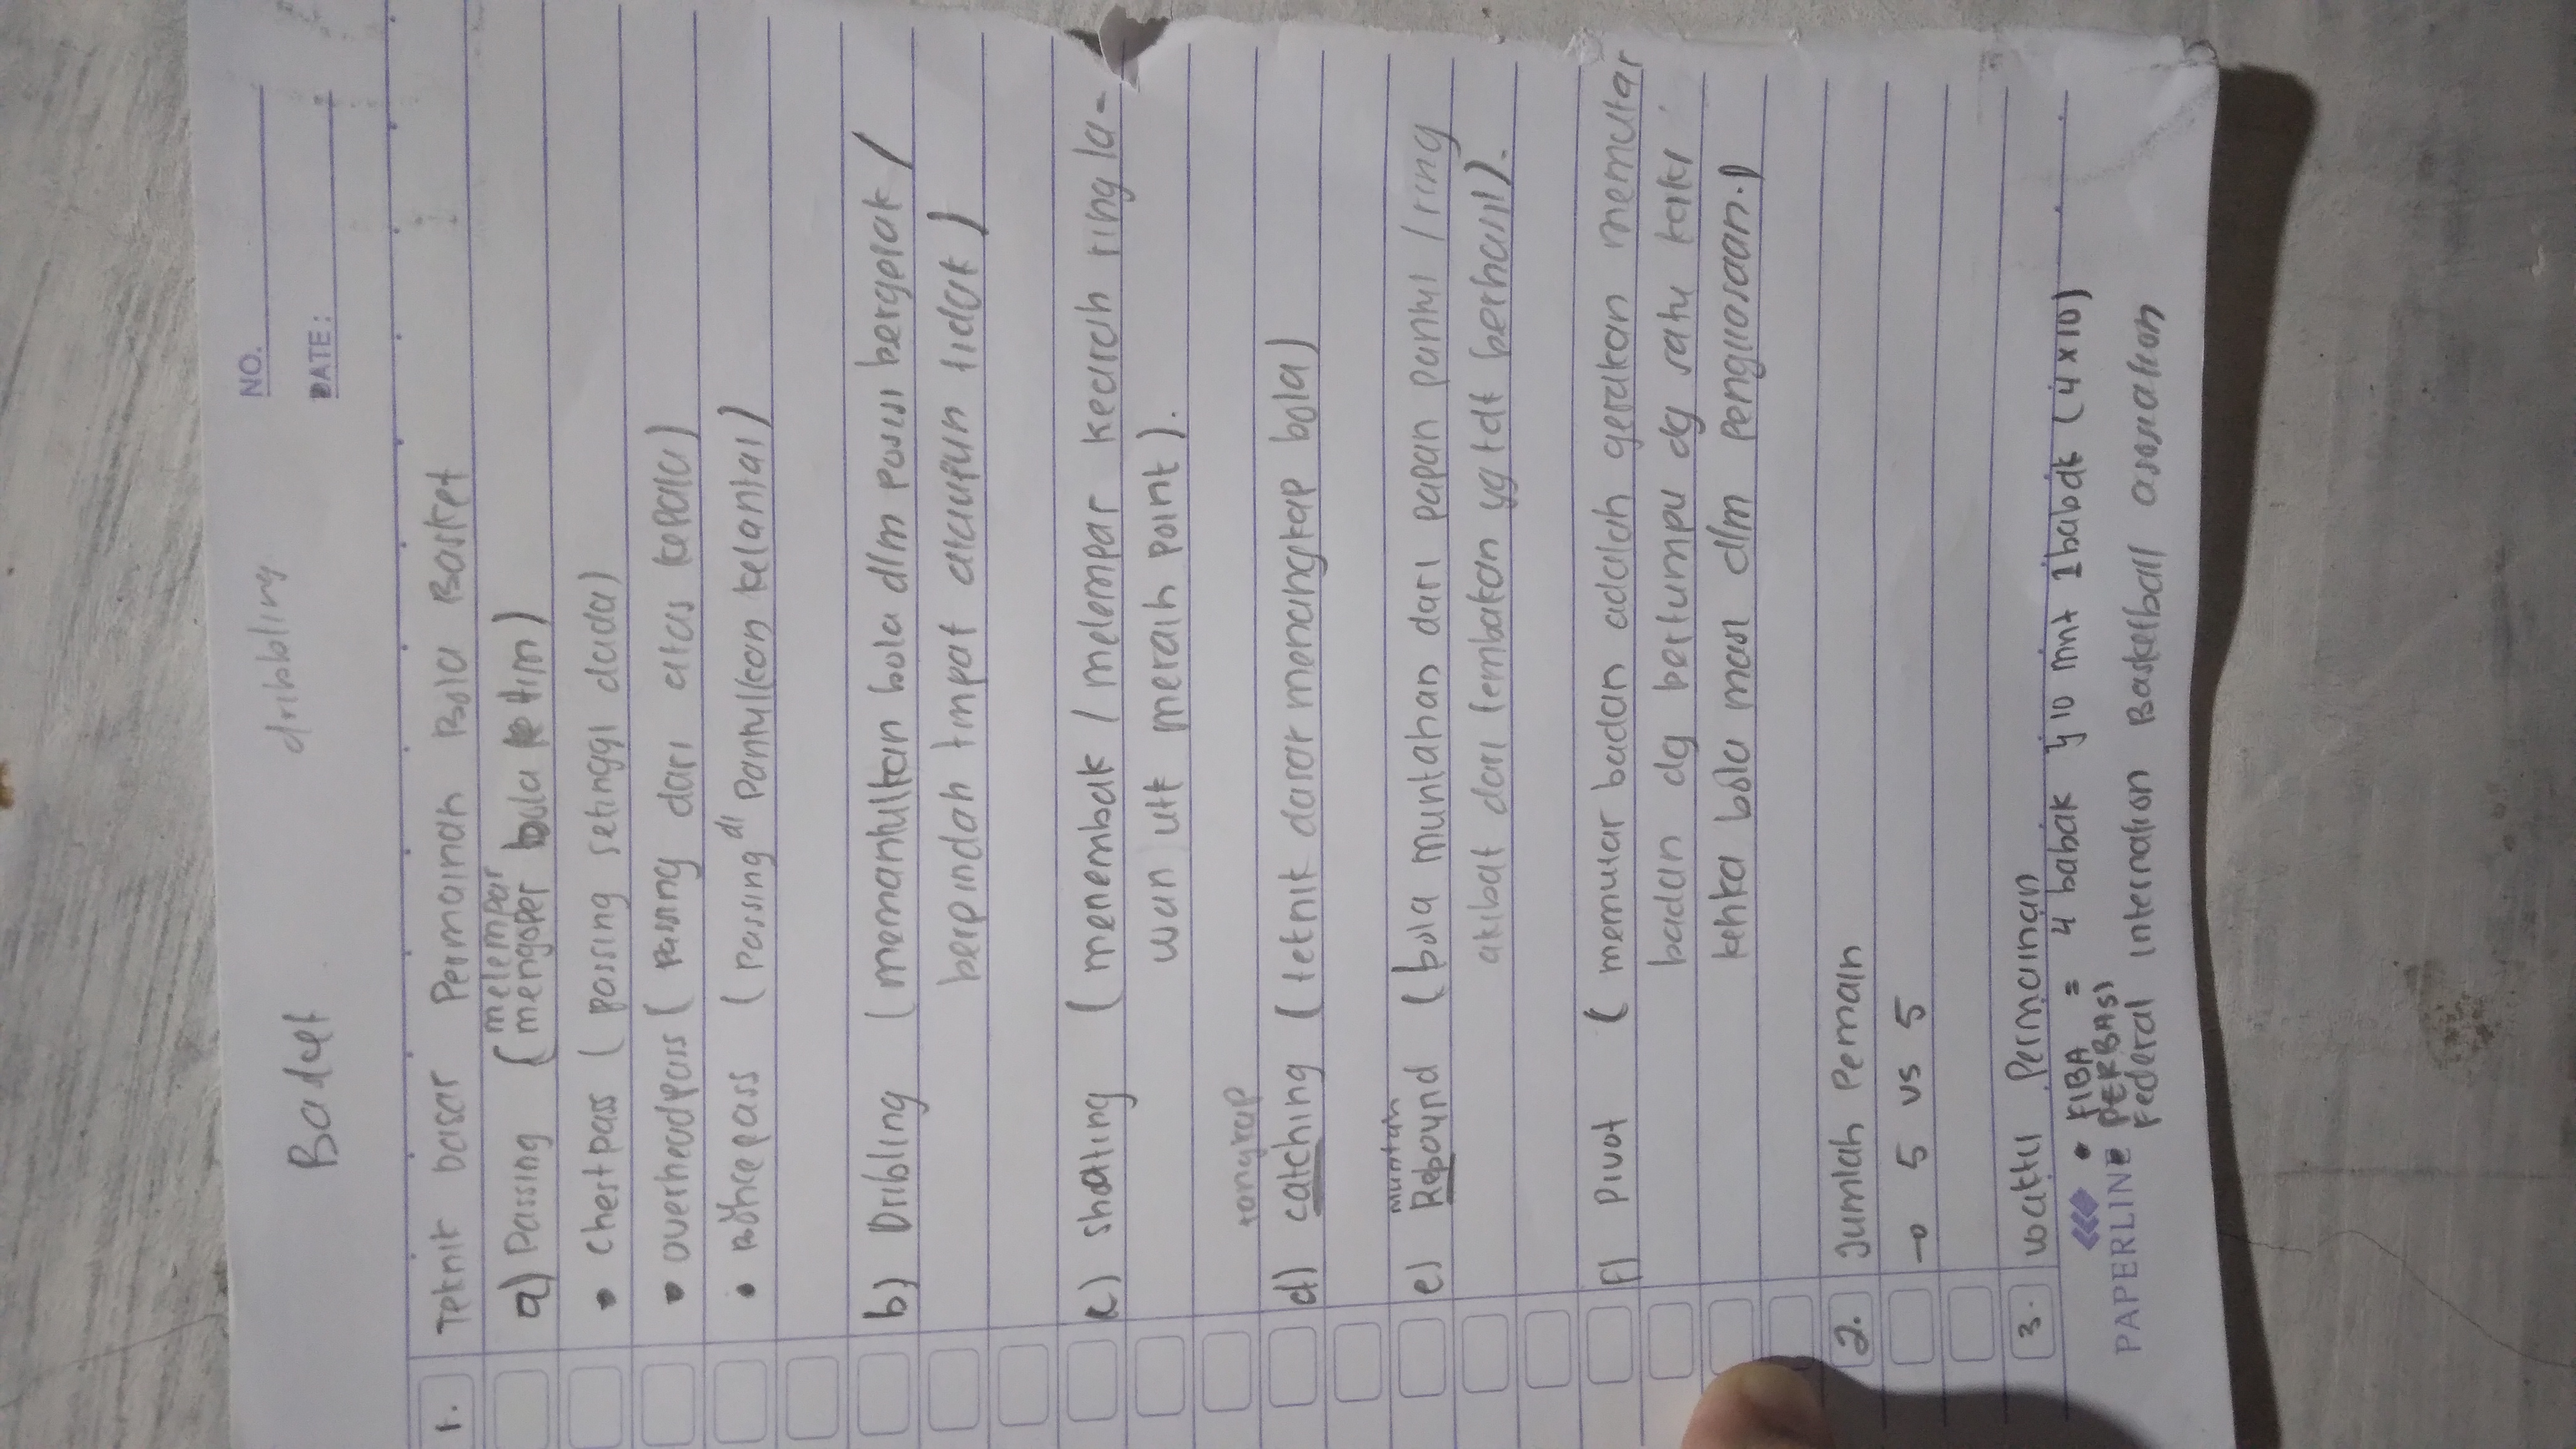 Basket
dribbling
NO.
DATE :
1. Teknik dasar Permainan Bola Basket
melempar
a) Passing (mengoper bola ke tim)
• Chestpass (passing setinggi dada)
• overheadpass (passing dari atas kepala)
• Bouncepass (passing di pantulkan kelantai)
b) Dribling (memantulkan bola dlm posisi bergerak /
berpindah tmpat ataupun tidak)
c) shooting (menembak / melempar kearah ring la-
wan utk meraih point).
tangkap
d) catching (teknik dasar menangkap bola)
muntah
e) Rebound (bola muntahan dari papan pantul / ring
akibat dari tembakan yg tdk berhasil).
f) Pivot (memutar badan adalah gerakan memutar
badan dg bertumpu dg satu kaki
ketika bola masi dlm penguasaan.)
2. Jumlah Pemain
→ 5 vs 5
3. waktu Permainan
• FIBA = 4 babak 10 mnt 1 babak (4x10)
PAPERLINE • PERBASI
Federal Internation Basketball asosiation